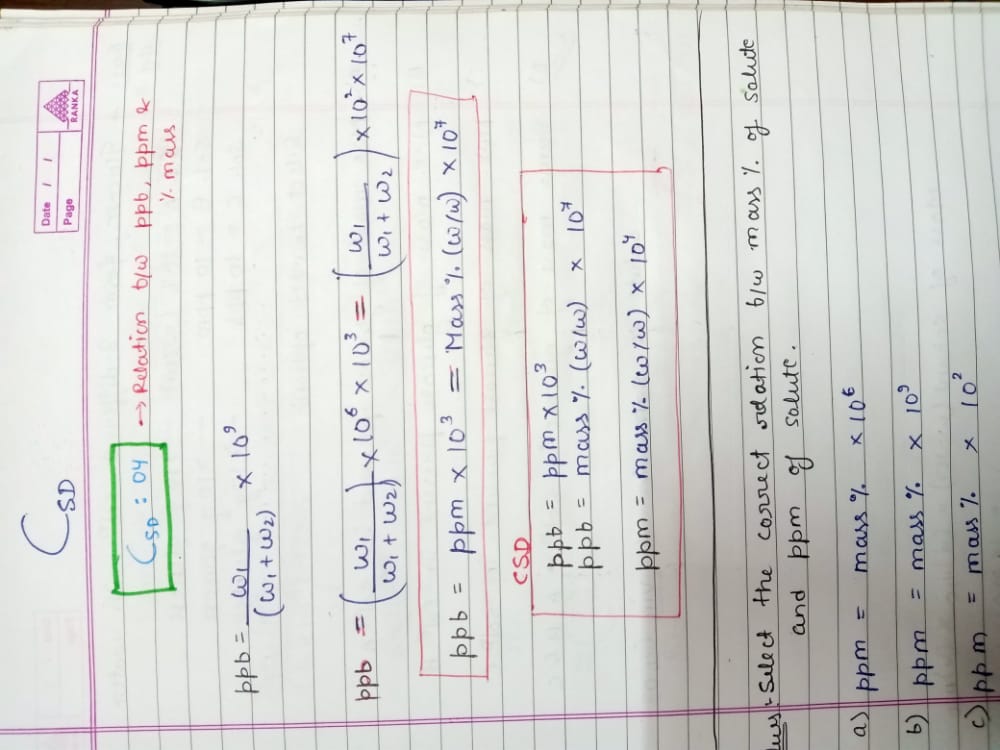 C SD
Date / /
Page
RANKA
CSD : 04 → Relation b/w ppb, ppm &
% mass
ppb = ω1/(ω1 + ω2) × 10⁹
ppb = (ω1/(ω1 + ω2)) × 10⁶ × 10³ = (ω1/(ω1 + ω2)) × 10² × 10⁷
ppb = ppm × 10³ = Mass % (ω/ω) × 10⁷
CSD
ppb = ppm × 10³
ppb = mass % (ω/ω) × 10⁷
ppm = mass % (ω/ω) × 10⁴
Select the correct relation b/w mass % of solute
and ppm of solute.
a) ppm = mass % × 10⁶
b) ppm = mass % × 10³
c) ppm = mass % × 10²